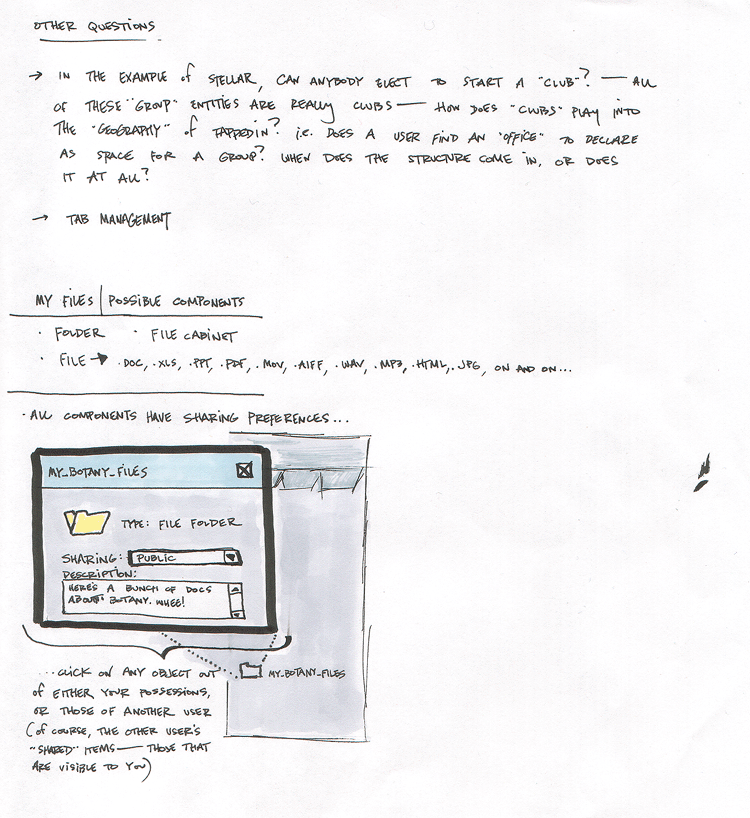 OTHER QUESTIONS
→ IN THE EXAMPLE OF STELLAR, CAN ANYBODY ELECT TO START A "CLUB"? — ALL
OF THESE "GROUP" ENTITIES ARE REALLY CLUBS — HOW DOES "CLUBS" PLAY INTO
THE "GEOGRAPHY" OF TAPPEDIN? i.e. DOES A USER FIND AN "OFFICE" TO DECLARE
AS SPACE FOR A GROUP? WHEN DOES THE STRUCTURE COME IN, OR DOES
IT AT ALL?
→ TAB MANAGEMENT
MY FILES | POSSIBLE COMPONENTS
· FOLDER · FILE CABINET
· FILE → .DOC, .XLS, .PPT, .PDF, .MOV, .AIFF, .WAV, .MP3, .HTML, .JPG, ON AND ON...
· ALL COMPONENTS HAVE SHARING PREFERENCES...
MY_BOTANY_FILES
TYPE: FILE FOLDER
SHARING: PUBLIC
DESCRIPTION:
HERE'S A BUNCH OF DOCS
ABOUT BOTANY. WHEE!
...CLICK ON ANY OBJECT OUT
OF EITHER YOUR POSSESSIONS,
OR THOSE OF ANOTHER USER
(OF COURSE, THE OTHER USER'S
"SHARED" ITEMS — THOSE THAT
ARE VISIBLE TO YOU)
MY_BOTANY_FILES